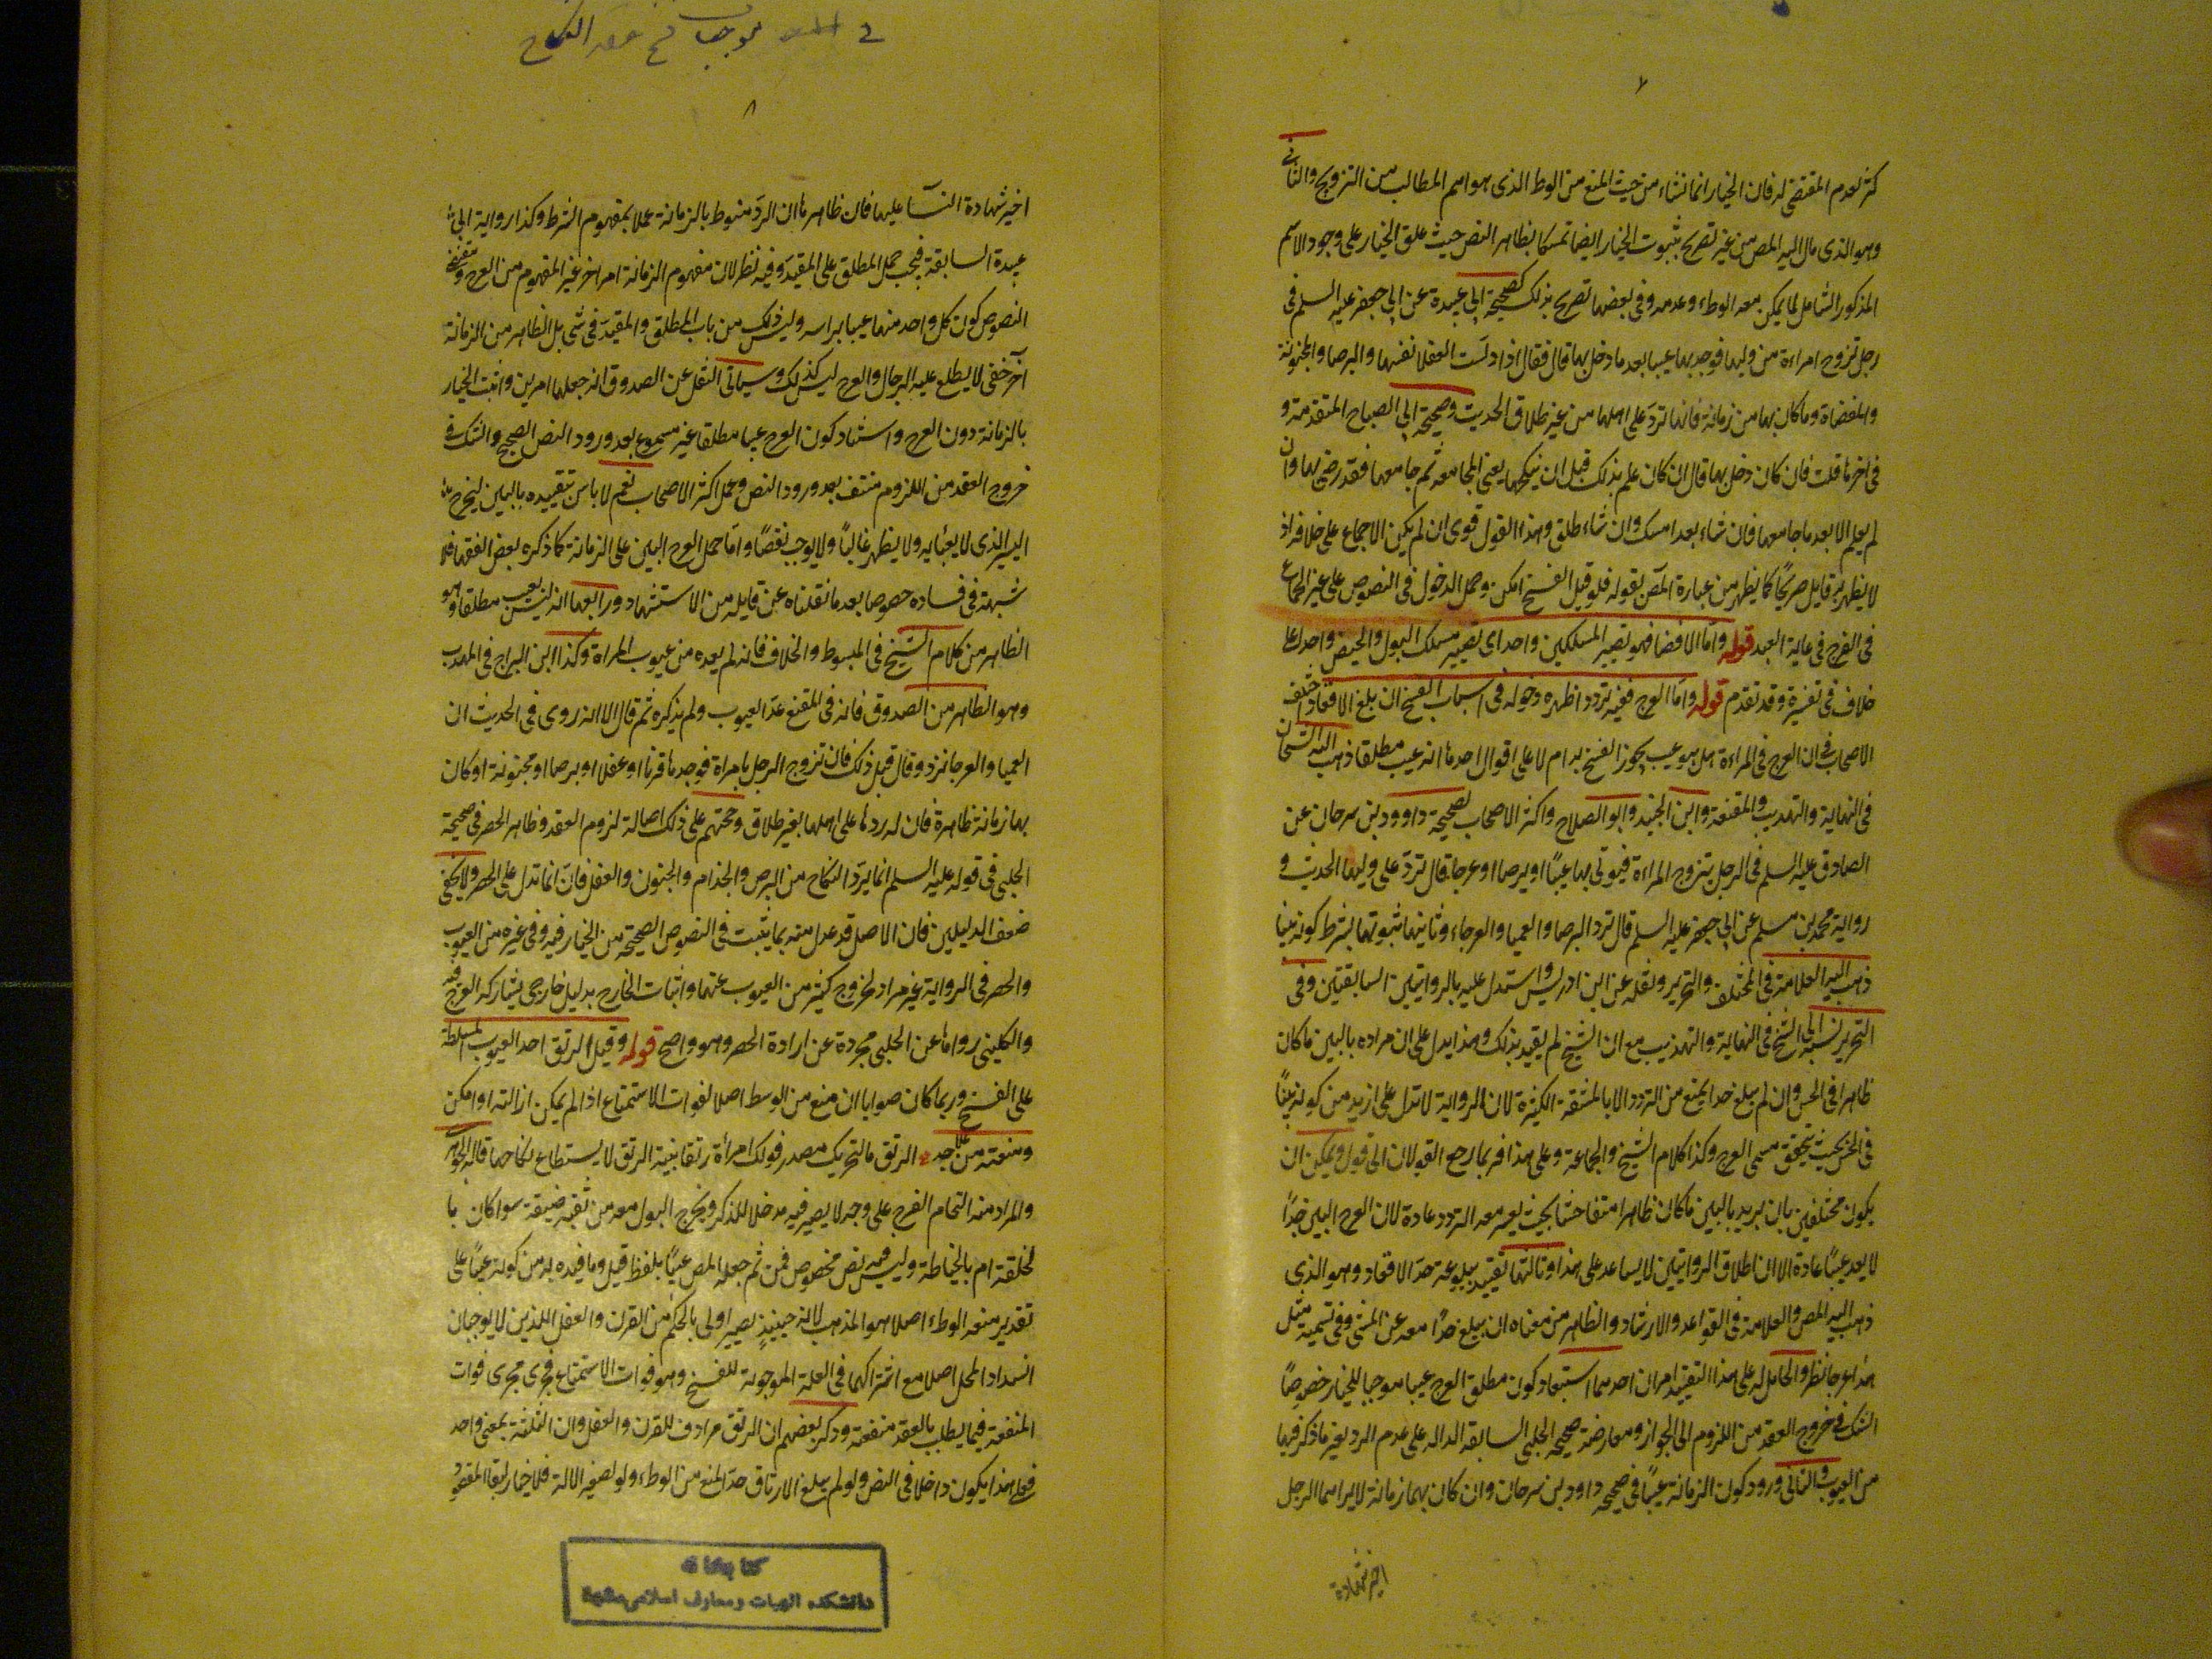 ٧
كثر لعدم المقتضى له فان الخيار انما نشاء من حيث المنع من الوطء الذى هو اهم المطالب من التزويج والثانى
وهو الذى مال اليه المص من غير تصريح بثبوت الخيار ايضا تمسكا بظاهر النص حيث علق الخيار على وجود الاسم
المذكور الشامل لما يمكن معه الوطء وعدمه وفى بعضها تصريح بذلك كصحيحة ابى عبيدة عن ابى جعفر عليه السلم فى
رجل تزوج امراءة من وليها فوجد بها عيبا بعد ما دخل بها قال فقال اذا دلست العفلا نفسها والبرصا والمجنونة
والمفضاة وما كان بها من زمانة فانها ترد على اهلها من غير طلاق الحديث وصحيحة ابى الصباح المتقدمة و
فى اخرها قلت فان كان دخل بها قال ان كان علم بذلك قبل ان ينكحها يعنى المجامعة ثم جامعها فقد رضى بها وان
لم يعلم الا بعد ما جامعها فان شاء بعد امسك وان شاء طلق وهذا القول قوى ان لم يكن الاجماع على خلافه اذ
لا يظهر به قايل صريحا كما يظهر من عبارة المص بقوله فلو قيل الفسخ امكن وحمل الدخول فى النصوص على غير الجماع
فى الفرج فى غاية البعد قوله واما الافضا فهو تصيير المسلكين واحدا اى تصيير مسلك البول والحيض واحدا على
خلاف فى تفسيره وقد تقدم قوله واما العرج ففيه تردد اظهره دخوله فى اسباب الفسخ ان بلغ الاقعاد اختلف
الاصحاب فى ان العرج فى المراءة هل هو عيب يجوز الفسخ به ام لا على اقوال احدها انه عيب مطلقا ذهب اليه الشيخان
فى النهاية والتهذيب والمقنعة وابن الجنيد وابو الصلاح واكثر الاصحاب لصحيحة داوود بن سرحان عن
الصادق عليه السلم فى الرجل يتزوج المراءة فيؤتى بها عميا او برصا او عرجا قال ترد على وليها الحديث و
رواية محمد بن مسلم عن ابى جعفر عليه السلم قال ترد البرصا والعميا والعرجاء وثانيها ثبوتها بشرط كونه بينا
ذهب اليه العلامة فى المختلف والتحرير ونقله عن ابن ادريس واستدل عليه بالروايتين السابقتين وفى
التحرير نسبه الى الشيخ فى النهاية والتهذيب مع ان الشيخ لم يقيد بذلك وهذا يدل على ان مراده بالبين ما كان
ظاهرا فى الحس وان لم يبلغ حدا يمنع من التردد الا بالمشقة الكثيرة لان الرواية لا تدل على ازيد من كونه بينا
فى الحس بحيث يتحقق مسمى العرج وكذا كلام الشيخ والجماعة وعلى هذا فربما رجع القولان الى قول ويمكن ان
يكون مختلفين بان يريد بالبين ما كان ظاهرا متفاحشا بحيث يعسر معه التردد عادة لان العرج اليسير جدا
لا يعد عيبا عادة الا ان اطلاق الروايتين لا يساعد على هذا وثالثها تقييده ببلوغه حد الاقعاد وهو الذى
ذهب اليه المص والعلامة فى القواعد والارشاد والظاهر من معناه ان يبلغ حدا معه عن المشى وفى تسمية مثل
هذا عرجا نظر والحامل له على هذا التقييد امران احدهما استبعاد كون مطلق العرج عيبا موجبا للخيار خصوصا
الشك فى خروج العقد من اللزوم الى الجواز ومعارضة صحيحة الحلبى السابقة الدالة على عدم الرد بغير ما ذكر فيها
من العيوب والثانى ورود كون الزمانة عيبا فى صحيحة داود بن سرحان وان كان بها زمانة لا يراها الرجل
اجيز شهادة
فى موجب فسخ عقد النكاح
٨
اجيز شهادة النسآ عليها فان ظاهرها ان الرد منوط بالزمانة عملا بمفهوم الشرط وكذا رواية ابى
عبيدة السابقة فيجب حمل المطلق على المقيد وفيه نظر لان مفهوم الزمانة امر اخر غير المفهوم من العرج ومقتضى
النصوص كون كل واحد منهما عيبا براسه وليس ذلك من باب المطلق والمقيد فى شى بل الظاهر من الزمانة
آخر خفى لا يطلع عليه الرجال والعرج ليس كذلك وسياتى النقل عن الصدوق انه جعلها امرين واثبت الخيار
بالزمانة دون العرج واستبعاد كون العرج عيبا مطلقا غير مسموع بعد ورود النص الصحيح والشك فى
خروج العقد من اللزوم منتف بعد ورود النص وعمل اكثر الاصحاب نعم لا باس بتقييده بالبين ليخرج
اليسير الذى لا يعبابه ولا يظهر غالبا ولا يوجب نقصا واما حمل العرج البين على الزمانة كما ذكره بعض الفقها فلا
شبهة فى فساده خصوصا بعد ما نقلناه عن قايله من الاستشهاد ورابعها انه ليس بعيب مطلقا وهو
الظاهر من كلام الشيخ فى المبسوط والخلاف فانه لم يعده من عيوب المراة وكذا ابن البراج فى المهذب
وهو الظاهر من الصدوق فانه فى المقنع عد العيوب ولم يذكره ثم قال الا انه روى فى الحديث ان
العميا والعرجا ترد وقال قبل ذلك فان تزوج الرجل بامراة فوجدها قرنا او عفلا او برصا او مجنونة او كان
بها زمانة ظاهرة فان له ردها على اهلها بغير طلاق وحجتهم على ذلك اصالة لزوم العقد وظاهر الحصر فى صحيحة
الحلبى فى قوله عليه السلم انما يرد النكاح من البرص والجذام والجنون والعفل فان انما تدل على الحصر ولا يخفى
ضعف الدليلين فان الاصل قد عدل منه بما يثبت فى النصوص الصحيحة من الخيار فيه وفى غيره من العيوب
والحصر فى الرواية غير مراد لخروج كثير من العيوب عنها واثبات الخارج بدليل خارجى يشاركه العرج فيه
والكلينى رواها عن الحلبى مجردة عن ارادة الحصر وهو واضح قوله وقيل الرتق احد العيوب المسلطة
على الفسخ وربما كان صوابا ان منع من الوطء اصلا لفوات الاستمتاع اذا لم يمكن ازالته او امكن
ومنعته من علاجه الرتق بالتحريك مصدر قولك امراة رتقا بينة الرتق لا يستطاع نكاحها قاله الجوهرى
والمراد منه التحام الفرج على وجه لا يصير فيه مدخل للذكر ويخرج البول معه من ثقبة ضيقة سوا كان با
لخلقة ام بالخياطة وليس فيه نص مخصوص فمن ثم جعله المص عيبا بلفظ قيل وما قيده به من كونه عيبا على
تقدير منعه الوطء اصلا هو المذهب لانه حينيذ يصير اولى بالحكم من القرن والعفل اللذين لا يوجبان
انسداد المحل اصلا مع اشتراكهما فى العلة الموجبة للفسخ وهو فوات الاستمتاع فجرى مجرى فوات
المنفعة فيما يطلب بالعقد منفعته وذكر بعضهم ان الرتق مرادف للقرن والعفل وان الثلثة بمعنى واحد
فعلى هذا يكون داخلا فى النص ولو لم يبلغ الارتاق حد المنع من الوطء ولو لصغير الالة فلا خيار لبقا المقصود
كتابخانه
دانشكده الهيات ومعارف اسلامى مشهد